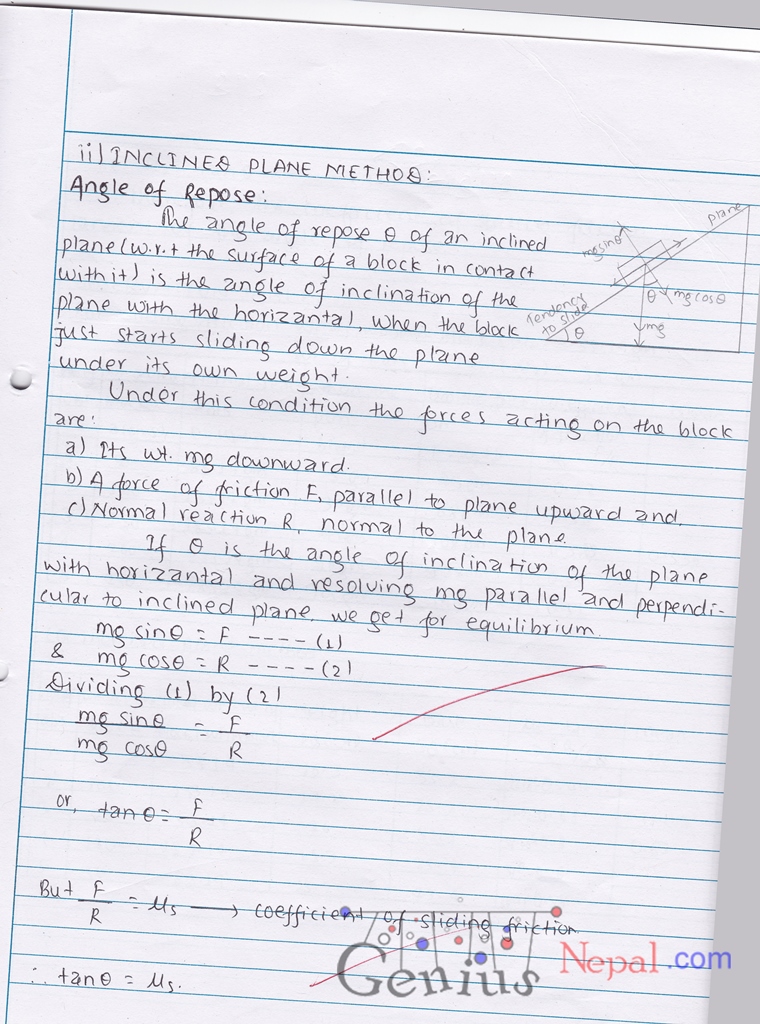 ii) INCLINED PLANE METHOD:
Angle of Repose:
The angle of repose θ of an inclined
plane (w.r.t the surface of a block in contact
with it) is the angle of inclination of the
plane with the horizantal, when the block
just starts sliding down the plane
under its own weight.
plane
mgsinθ
θ
mgcosθ
Tendency
to slide
θ
mg
Under this condition the forces acting on the block
are:
a) Its wt. mg downward.
b) A force of friction F, parallel to plane upward and.
c) Normal reaction R, normal to the plane.
If θ is the angle of inclination of the plane
with horizantal and resolving mg parallel and perpendi-
cular to inclined plane, we get for equilibrium.
mg sinθ = F ---- (1)
& mg cosθ = R ---- (2)
Dividing (1) by (2)
mg sinθ = F
mg cosθ R
or, tanθ = F
R
But F = μs → coefficient of sliding friction
R
∴ tanθ = μs.
Genius Nepal.com